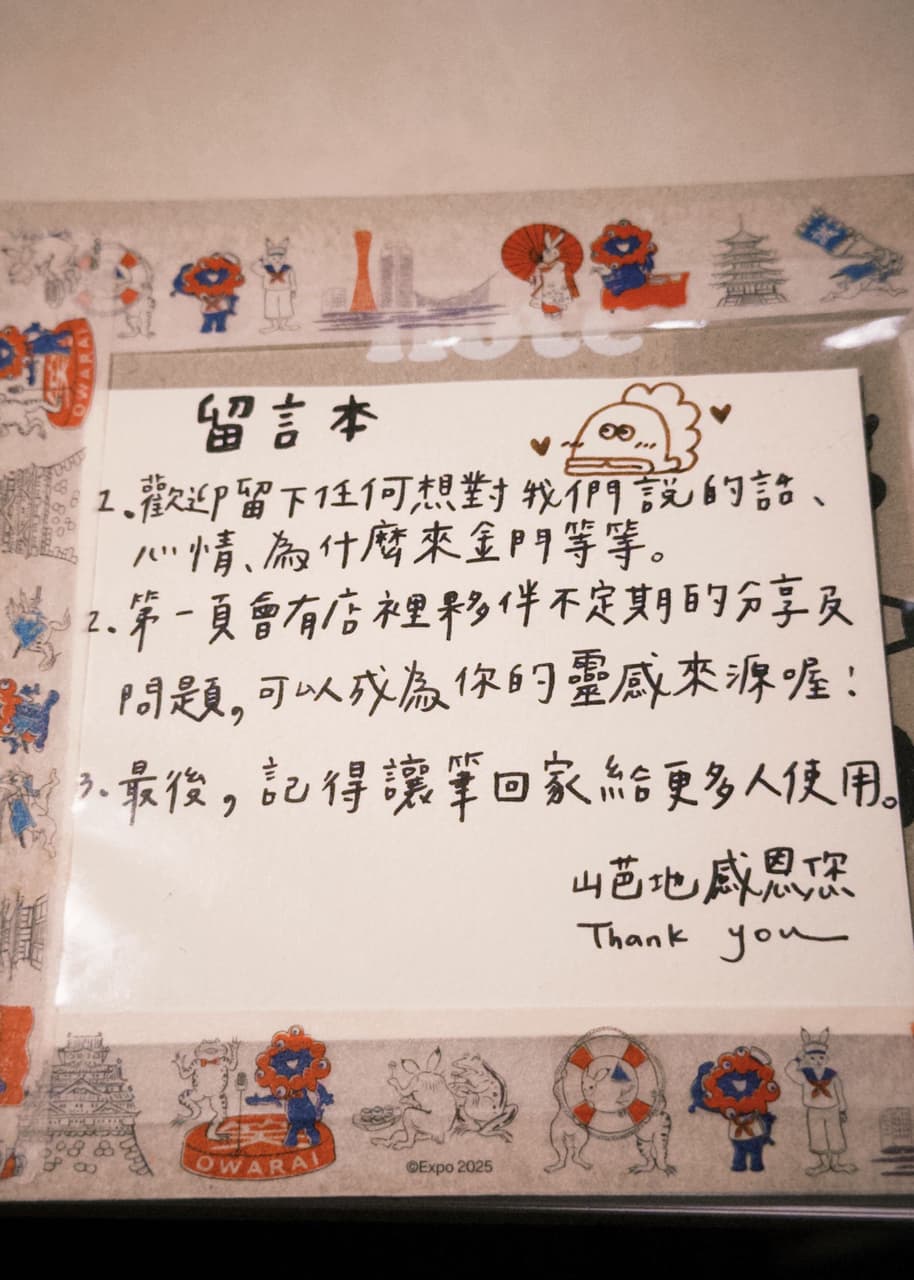 note
留言本
1.歡迎留下任何想對我們說的話、
心情、為什麼來金門等等。
2.第一頁會有店裡夥伴不定期的分享及
問題,可以成為你的靈感來源喔!
3.最後,記得讓筆回家給更多人使用。
山芭地感恩您
Thank you
OWARAI
笑
OWARAI
©Expo 2025